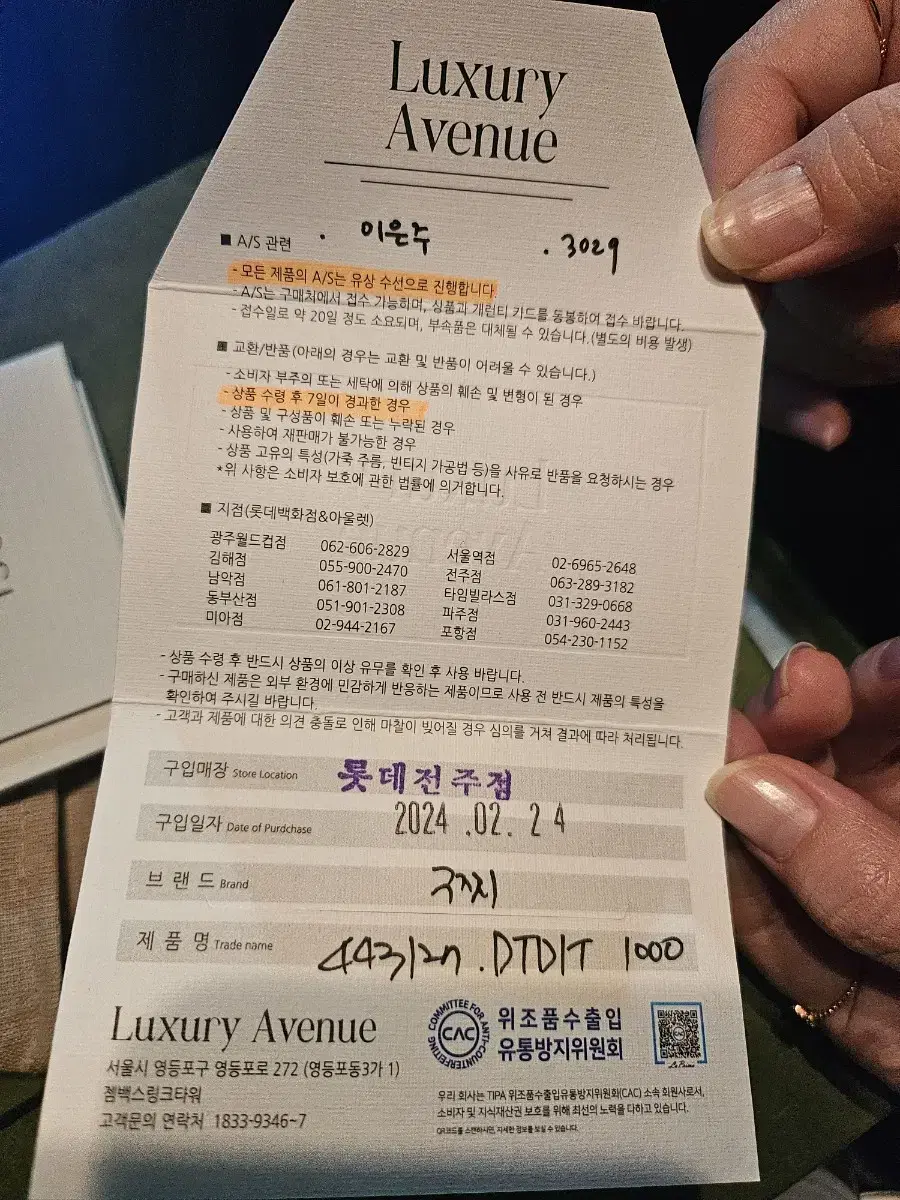 Luxury
Avenue
■ A/S 관련 . 이은주 . 3029
- 모든 제품의 A/S는 유상 수선으로 진행합니다.
- A/S는 구매처에서 접수 가능하며, 상품과 개런티 카드를 동봉하여 접수 바랍니다.
- 접수일로 약 20일 정도 소요되며, 부속품은 대체될 수 있습니다.(별도의 비용 발생)
■ 교환/반품(아래의 경우는 교환 및 반품이 어려울 수 있습니다.)
- 소비자 부주의 또는 세탁에 의해 상품의 훼손 및 변형이 된 경우
- 상품 수령 후 7일이 경과한 경우
- 상품 및 구성품이 훼손 또는 누락된 경우
- 사용하여 재판매가 불가능한 경우
- 상품 고유의 특성(가죽 주름, 빈티지 가공법 등)을 사유로 반품을 요청하시는 경우
*위 사항은 소비자 보호에 관한 법률에 의거합니다.
■ 지점(롯데백화점&아울렛)
광주월드컵점 062-606-2829 서울역점 02-6965-2648
김해점 055-900-2470 전주점 063-289-3182
남악점 061-801-2187 타임빌라스점 031-329-0668
동부산점 051-901-2308 파주점 031-960-2443
미아점 02-944-2167 포항점 054-230-1152
- 상품 수령 후 반드시 상품의 이상 유무를 확인 후 사용 바랍니다.
- 구매하신 제품은 외부 환경에 민감하게 반응하는 제품이므로 사용 전 반드시 제품의 특성을
확인하여 주시길 바랍니다.
- 고객과 제품에 대한 의견 충돌로 인해 마찰이 빚어질 경우 심의를 거쳐 결과에 따라 처리됩니다.
구입매장 Store Location 롯데전주점
구입일자 Date of Purdchase 2024 .02. 24
브 랜 드 Brand 구찌
제 품 명 Trade name 443127 . DTDIT 1000
Luxury Avenue
서울시 영등포구 영등포로 272 (영등포동3가 1)
젬백스링크타워
고객문의 연락처 1833-9346~7
COMMITTEE FOR ANTI-COUNTERFEITING
CAC
위조품수출입
유통방지위원회
우리 회사는 TIPA 위조품수출입유통방지위원회(CAC) 소속 회원사로서,
소비자 및 지식재산권 보호를 위해 최선의 노력을 다하고 있습니다.
QR코드를 스캔하시면, 자세한 정보를 보실 수 있습니다.